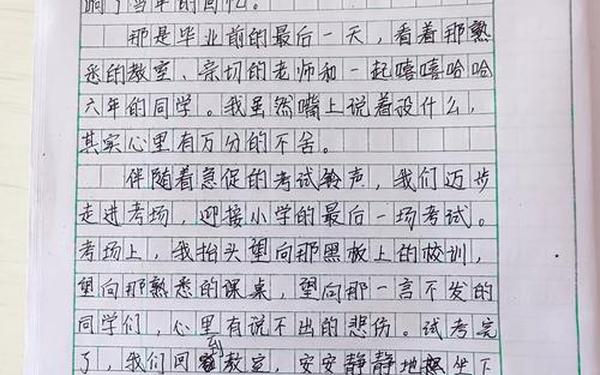 响了当年的回忆。
那是毕业前的最后一天，看着那熟
悉的教室、亲切的老师和一起嘻嘻哈哈
六年的同学。我虽然嘴上说着没什么，
其实心里有万分的不舍。
伴随着急促的考试铃声，我们迈步
走进考场，迎接小学的最后一场考试。
考场上，我抬头望向那黑板上的校训，
望向那熟悉的课桌，望向那一言不发的
同学们，心里有说不出的悲伤。试考完
了，我们回到教室，安安静静地坐下